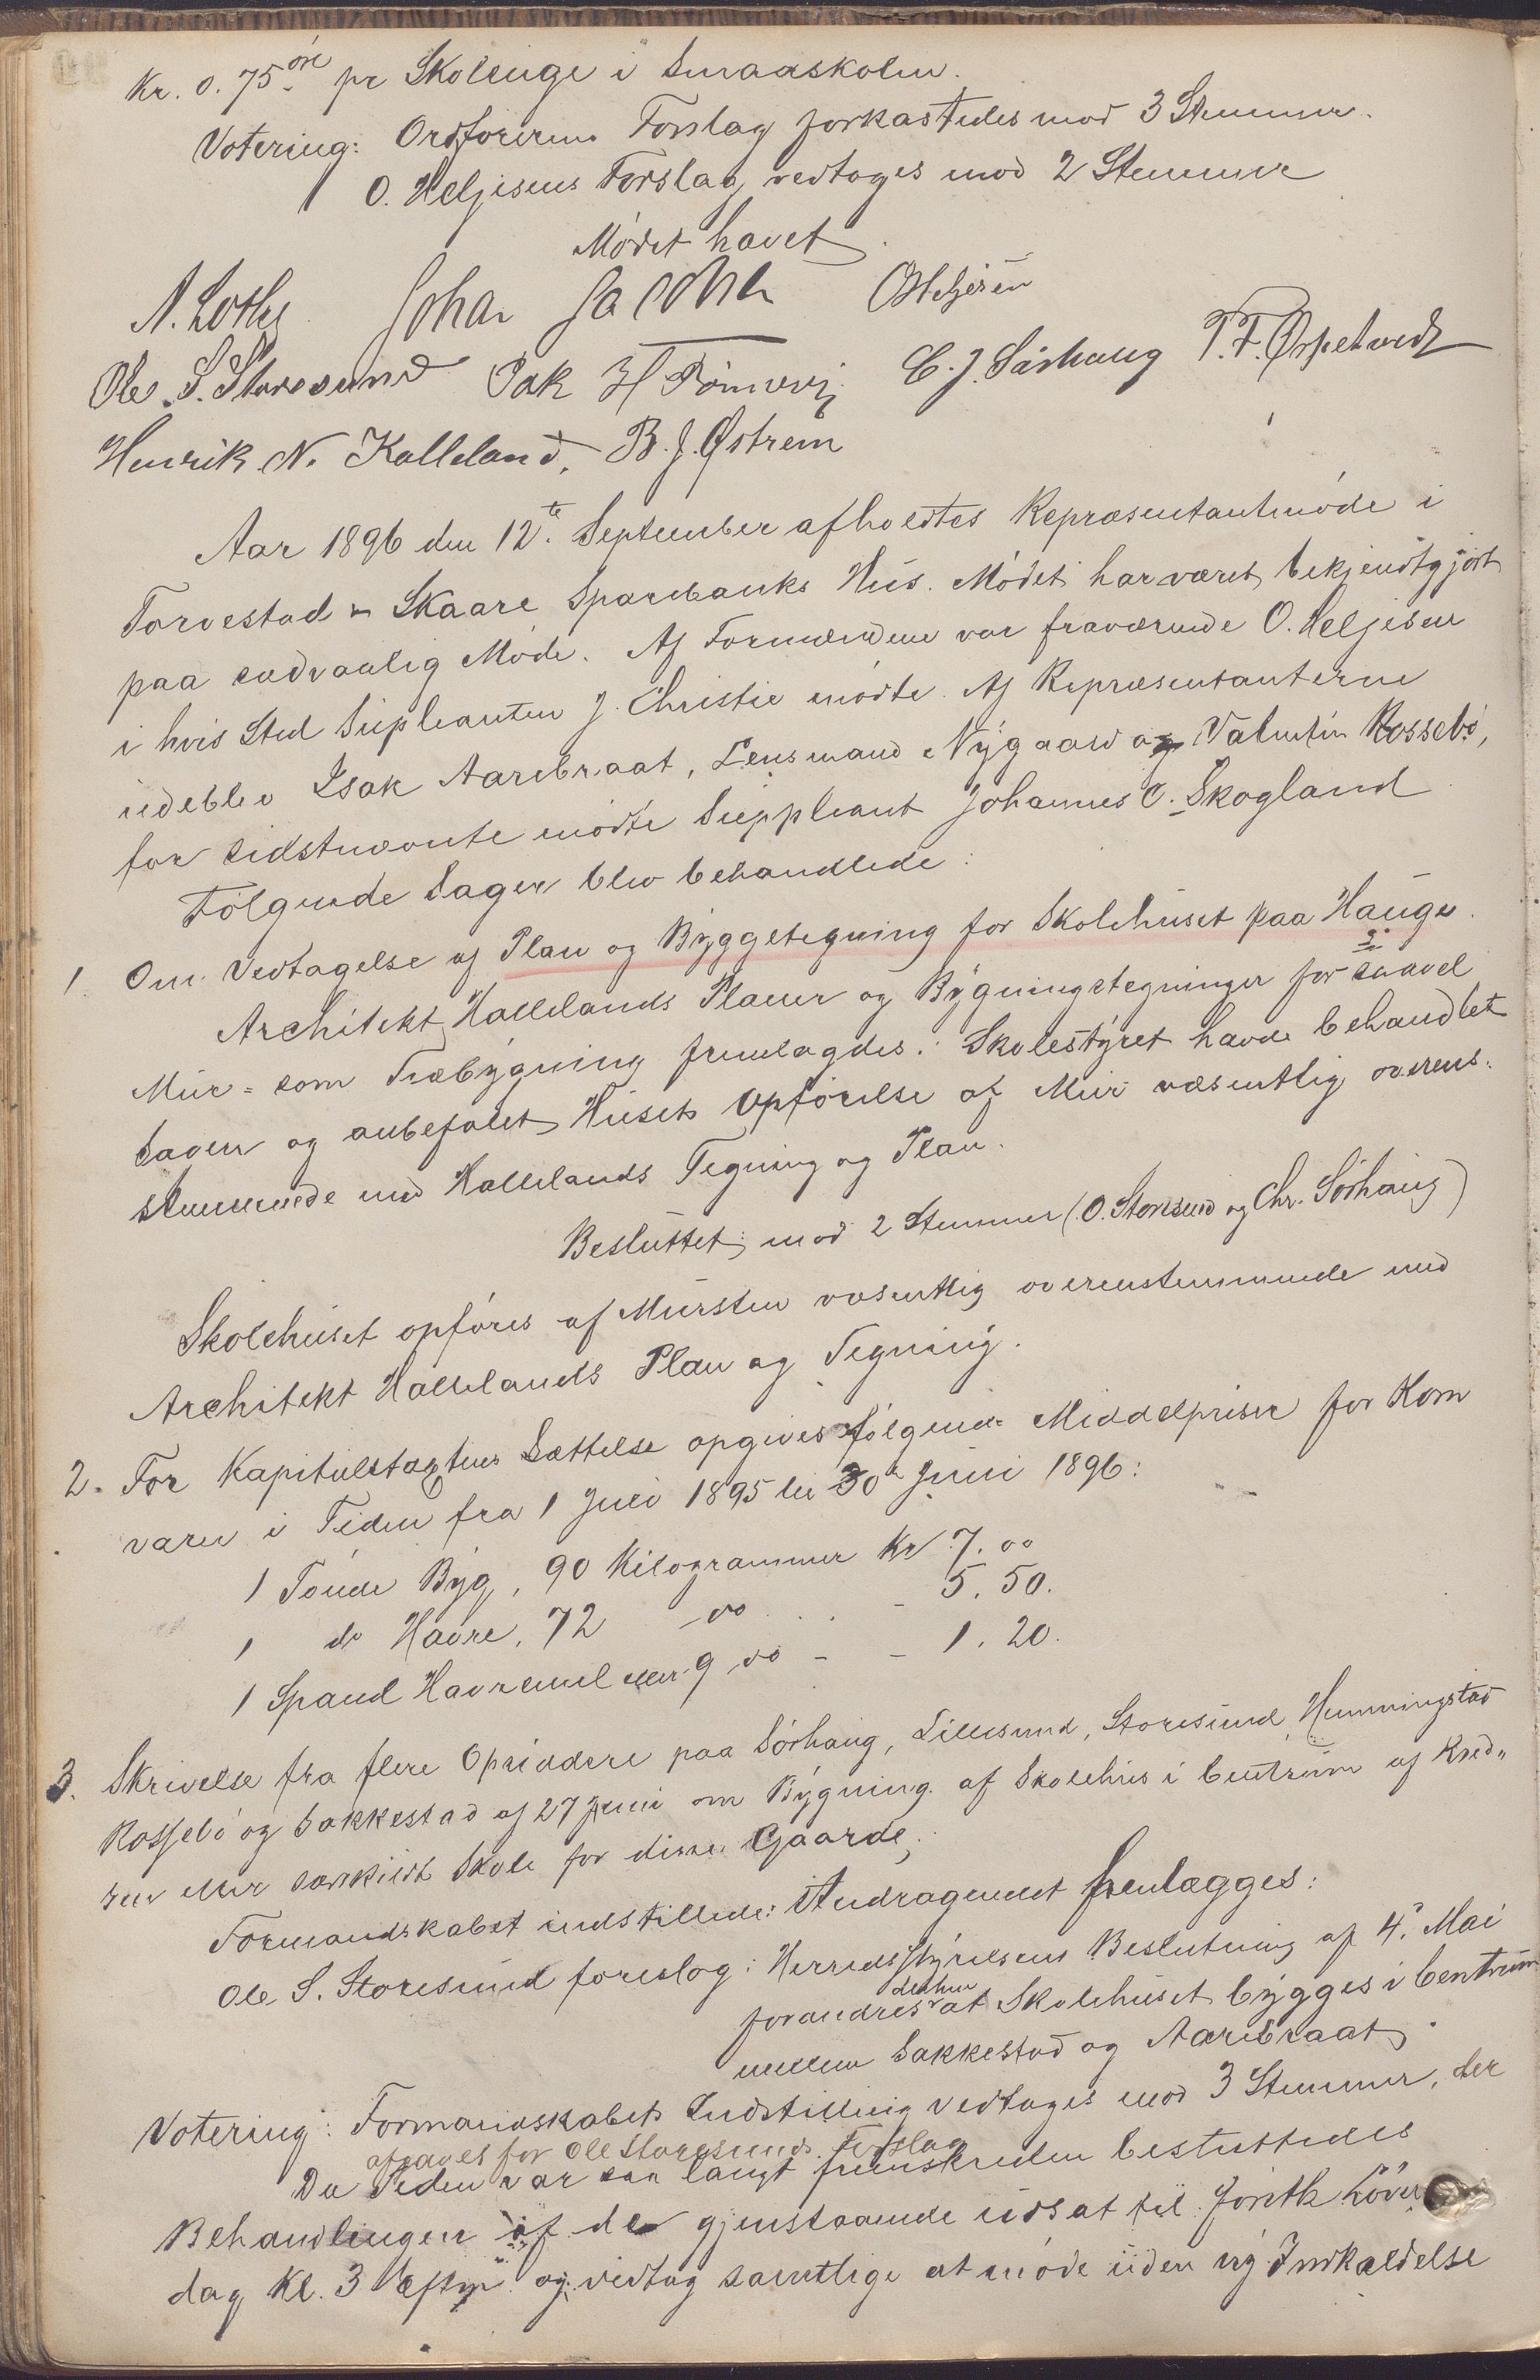 Kr. 0.75 øre pr Skoleuge i Smaaskolen.
Votering: Ordførerens Forslag forkastedes mod 3 Stemmer.
O. Heljesens Forslag vedtages mod 2 Stemmer
Mødet hævet.
N. Lothe Johan Jacobsen O Heljesen
Ole S. Storesund Isak H Rönnevig C. J. Sörhaug T. F. Øspetvedt
Henrik N. Kalleland, B. J. Østrem
Aar 1896 den 12te September afholdtes Repræsentantmøde i
Torvestad & Skaare Sparebanks Hus. Mødet har været bekjendtgjort
paa sædvanlig Møde. Af Formændene var fraværende O. Heljesen
i hvis Sted Supleanten J. Christie mødte. Af Repræsentanterne
udeblev Isak Aarebraat, Lensmand Nygaard og Valentin Rossebø,
for sidstnævnte mødte Suppleant Johannes O. Skogland
Følgende Sager blev behandlede:
1. Om Vedtagelse af Plan og Byggetegning for Skolehuset paa Hauge.
Architekt Hallelands Planer og Bygningstegninger for saavel
Mur- som Træbygning fremlagdes. Skolestyret havde behandlet
Sagen og anbefalet Husets Opførelse af Mur væsentlig overens-
stemmende med Hallelands Tegning og Plan.
Besluttet: mod 2 Stemmer (O. Storesund og Chr. Sörhaug)
Skolehuset opføres af Mursten væsentlig overenstemmende med
Architekt Hallelands Plan og Tegning.
2. For Kapitelstaxtens Sættelse opgives følgende Middelpriser for Korn
varer i Tiden fra 1 Juli 1895 til 30te Juni 1896:
1 Tønde Byg, 90 Kilogrammer Kr 7.00
1 do Havre, 72 do - 5.50.
1 Spand Havremel eller 9 do - - 1.20.
3. Skrivelse fra flere Opsiddere paa Sørhaug, Lillesund, Storesund, Hemmingstad
Rossebø og Sakkestad af 27 Juni om Bygning af Skolehus i Centrum af Kred-
sen eller særskildt Skole for disse Gaarde;
Formandskabet indstillede: Andragendet henlægges:
Ole S. Storesund foreslog: Herredsstyrelsens Beslutning af 4. Mai
forandres derhen at Skolehuset bygges i Centrum
mellem Sakkestad og Aarebraat.
Votering: Formandskabets Indstilling vedtages mod 3 Stemmer, der
afgaves for Ole Storesunds Forslag
Da Tiden var saa langt fremskreden besluttedes
Behandlingen af de gjenstaaende udsat til førstk Löver
dag Kl. 3 Efterm og vedtog samtlige at møde uden ny Indkaldelse